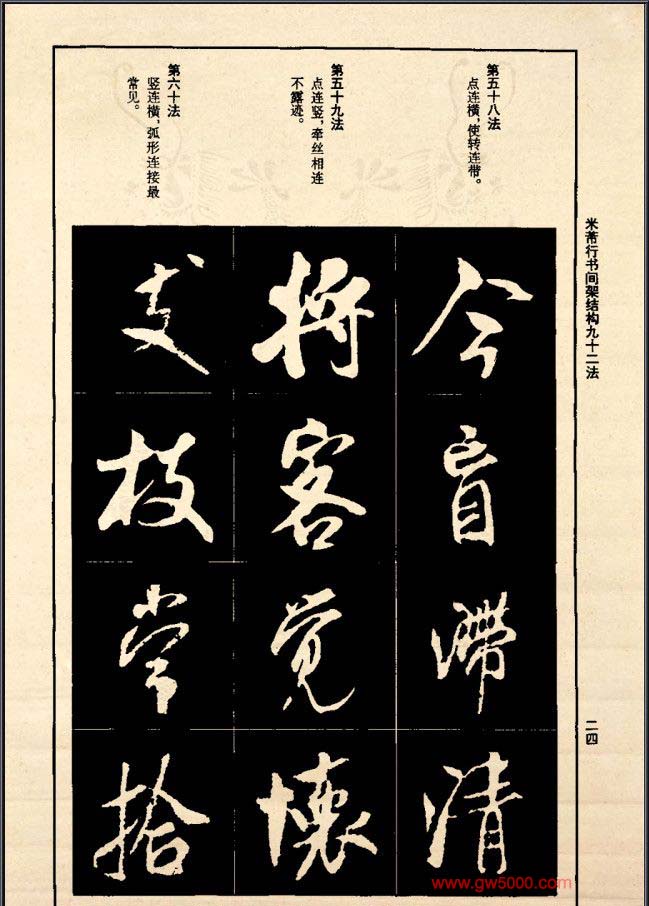 米芾行书间架结构九十二法
二四
第五十八法
点连横，使转连带。
第五十九法
点连竖，牵丝相连
不露迹。
第六十法
竖连横，弧形连接最
常见。
今盲滞清
将客觉怀
支枝常拾
www.gw5000.com